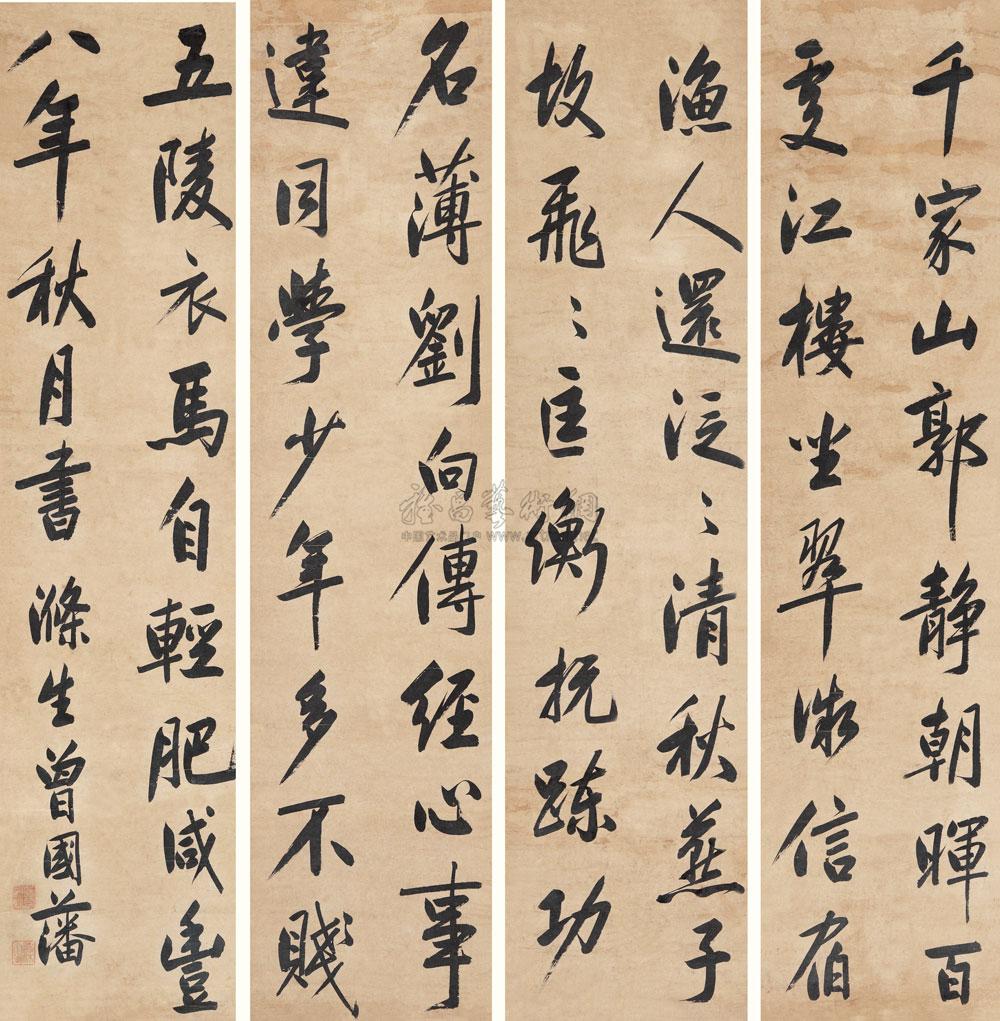 千家山郭静朝暉百
處江樓坐翠微信宿
漁人還泛〻清秋燕子
故飛〻匡衡抗疏功
名薄劉向傳經心事
違同學少年多不賤
五陵衣馬自輕肥咸豐
八年秋月書 滌生曾國藩
雅昌藝術網